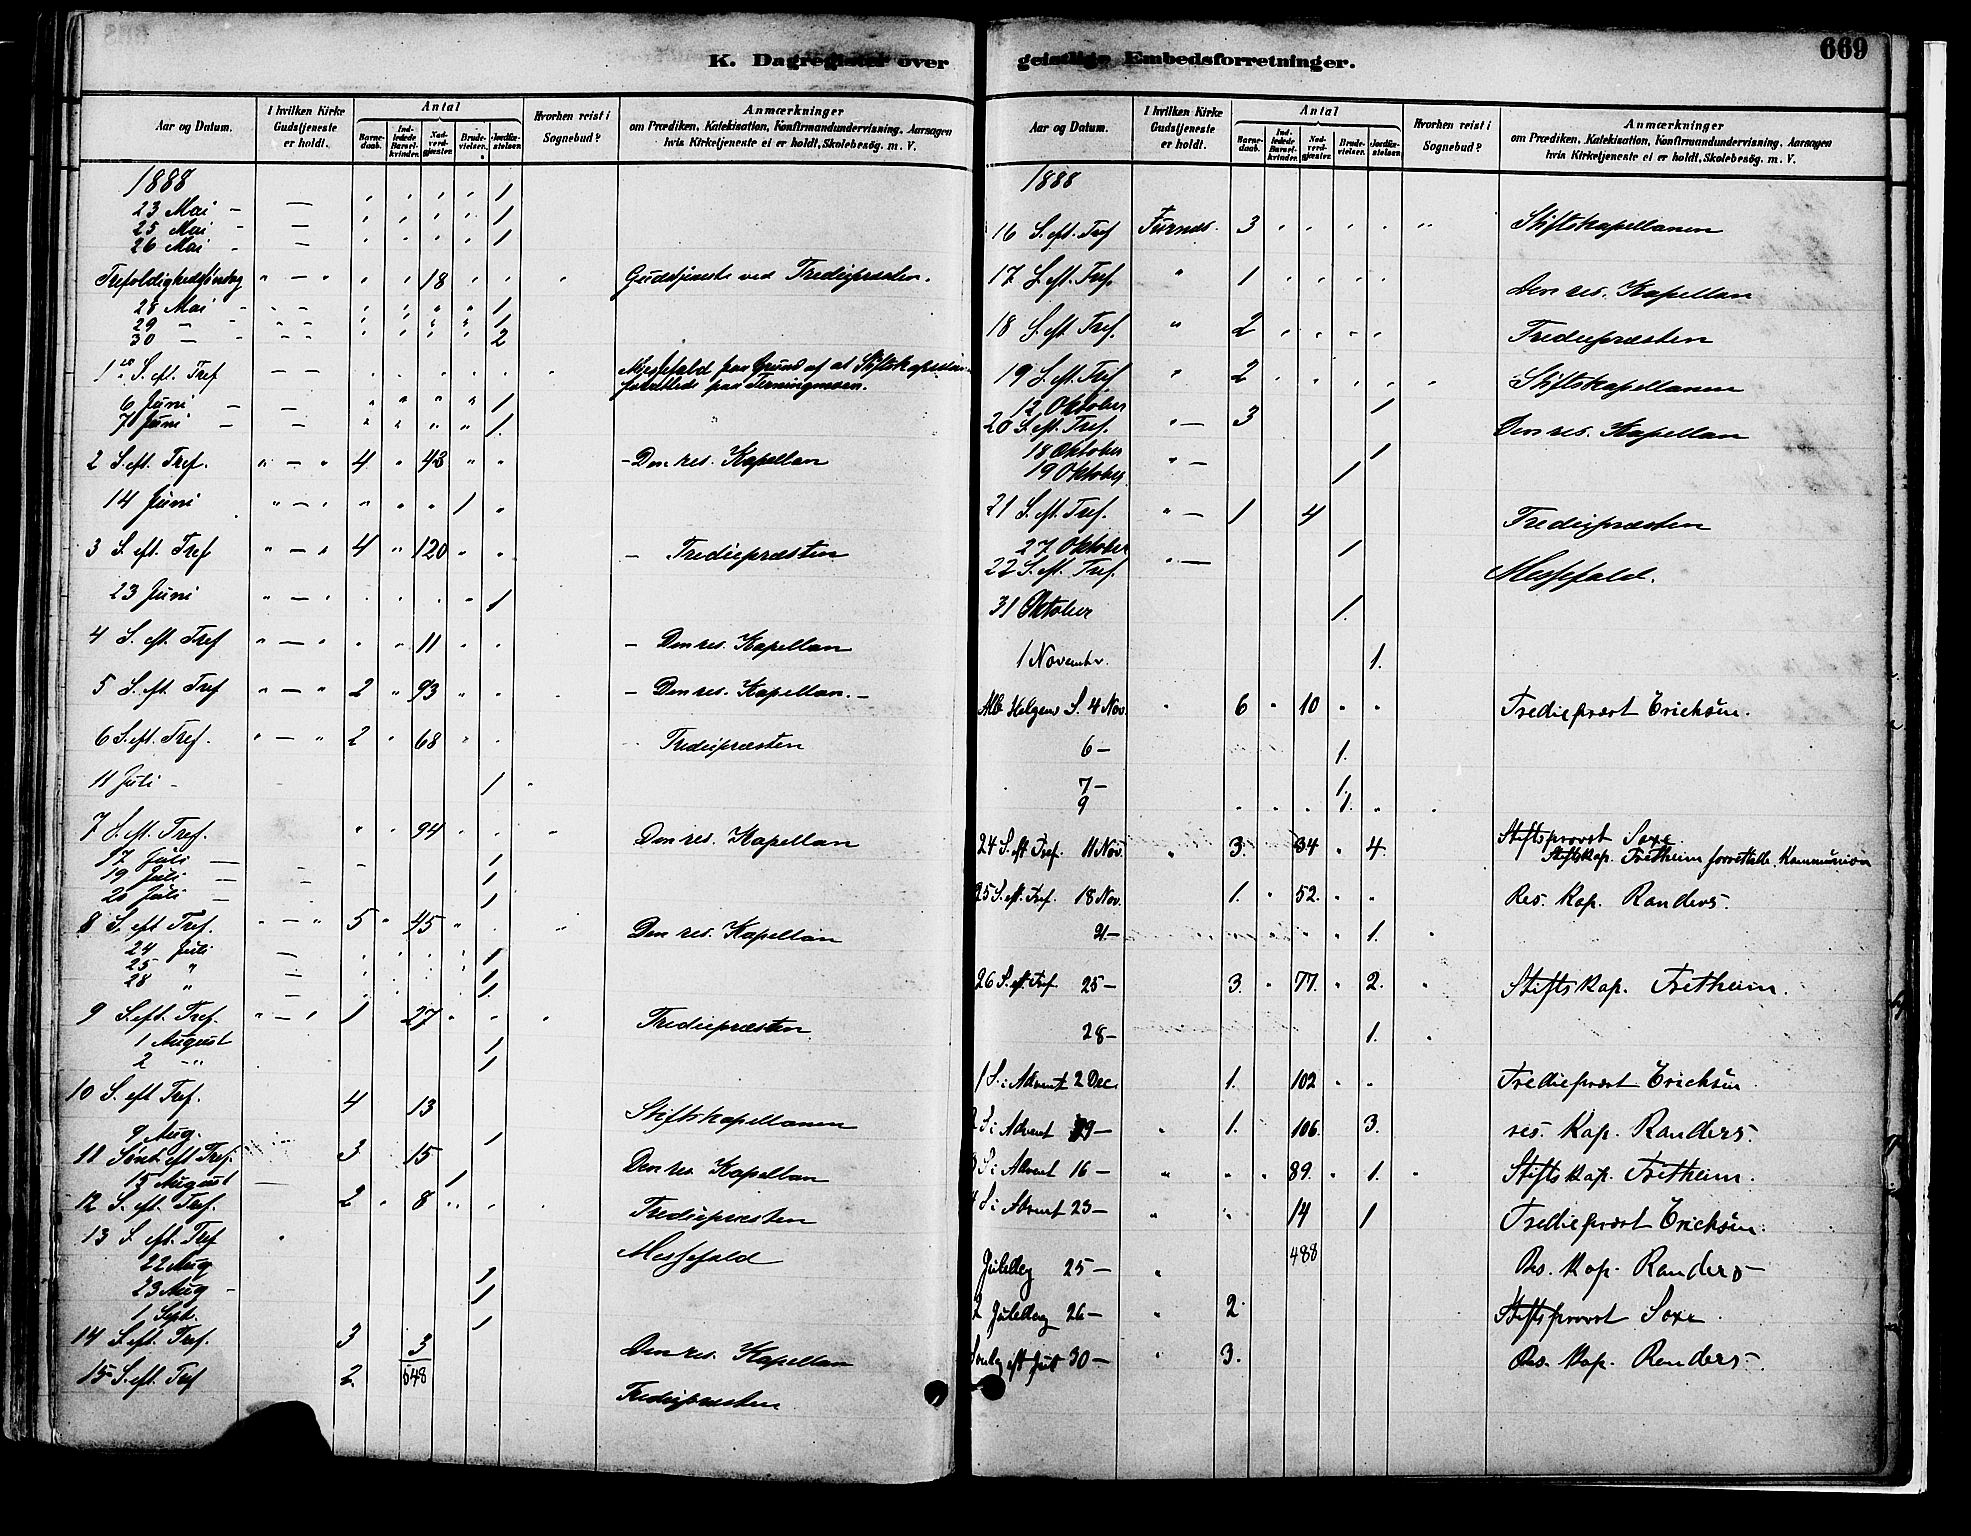 K. Dagregister over geistlige Embedsforretninger. 669
Aar og Datum. | I hvilken Kirke Gudstjeneste er holdt. | Antal | Barnedaab. | Indledede Barselkvinder. | Nadverdgjæster. | Brudevielser. | Jordfæstelser. | Hvorhen reist i Sognebud? | Anmærkninger om Prædiken, Katekisation, Konfirmandundervisning, Aarsagen hvis Kirketjeneste ei er holdt, Skolebesøg. m. V.
1888 1
23 Mai - — 1
25 Mai - — 1
26 Mai - — 1
Trefoldighedssøndag " — " 18 Gudstjeneste ved Trediepræsten.
28 Mai - 1
29 — 1
30 — 2
1ste S. eft. Tref — Messefald paa Grund af at Stiftskapellanen
forrettede paa Terningmoen.
6 Juni — — 1
7 Juni — — 1.
2 S. eft. Tref. " — " 4 " 43 " " - Den res. Kapellan
14 Juni " — " 1 "
3 S. eft. Tref " — " 4 " 120 " " - Trediepræsten
23 Juni " — " 1
4 S. eft. Tref " — " 11 - Den res. Kapellan
5 S. eft. Tref " — " 2 " 93 - Den res. Kapellan. -
6 S. eft. Tref. " — " 2 " 68 Trediepræsten
11 Juli - 1
7 S. eft. Tref. 94 Den res. Kapellan
17 Juli — 1
19 Juli — 1
20 Juli — 1
8 S. eft Tref. " — " 5 " 45 Den res. Kapellan
24 Juli — 1
25 " — 1
28 " — 1
9 S. eft. Tref. " — " 1 27 Trediepræsten
1 August 1
2 —"— 1
10 S. eft Tref. 4 13 Stiftskapellanen
9 Aug. 1
11 Sønd. eft Tref. 3 15 Den res. Kapellan
15 August — 1
12 S. eft. Tref. 2 8 Trediepræsten
13 S. eft. Tref Messefald
22 Aug 1
23 Aug - 1
1 Sept. 1
14 S. eft. Tref. 3 3 Den res. Kapellan
548
15 S. eft. Tref 2 Trediepræsten
Aar og Datum. | I hvilken Kirke Gudstjeneste er holdt. | Antal | Barnedaab. | Indledede Barselkvinder. | Nadverdgjæster. | Brudevielser. | Jordfæstelser. | Hvorhen reist i Sognebud? | Anmærkninger om Prædiken, Katekisation, Konfirmandundervisning, Aarsagen hvis Kirketjeneste ei er holdt, Skolebesøg. m. V.
1888
16 S. eft. Tref Furnes. 3 Stiftskapellanen
17 S. eft. Tref. " 1 Den res. Kapellan
18 S. eft. Tref. " 2 Trediepræsten
19 S. eft. Tref " 2 Stiftskapellanen
12 Oktober 1
20 S. eft. Tref. " — 3 Den res. Kapellan
18 Oktober 1
19 Oktober " — 1
21 S. eft. Tref. " — 1 4 Trediepræsten
27 Oktober 1
22 S. eft. Tref. " — Messefald.
31 Oktober 1.
1 Novembr. 1.
Alle Helgens S. 4 Nov. " 6 " 10 " " Tredieprest Erichsen.
6 — 1.
7 — 1.
9 1.
24 S. eft Tref. 11 Nov. " 3. 34 " 4. Stiftsprovst Saxe
Stiftskap. Fretheim forrettede Kommunion
25 S. eft Tref. 18 Nov. 1. " 52. " " Res. Kap. Randers.
21 — 1.
26 S. eft Tref. 25 — 3. " 77. " 2. Stiftskap. Fretheim.
28 — 1.
1 S. i Advent 2 Dec. 1. 102 " " Tredieprest Erichsen
2 S. i Advent 9 — " 1. 106. 3. res. Kap. Randers.
3 S. i Advent 16 — " " 89. " 1. Stiftskap. Fretheim.
4 S. i Advent 23 — " " 14 1 Tredieprest Erichsen.
488
Juledag 25 — " Res. Kap. Randers —
2 Juledag 26 — " 2. Stiftsprovst Saxe.
Søndag eft Jul 30 — " 3. Res. Kap. Randers —